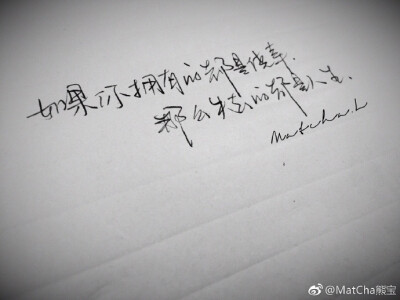 如果你拥有的都是侥幸.
那么失去的都是人生.
Matcha.L
@MatCha熊宝